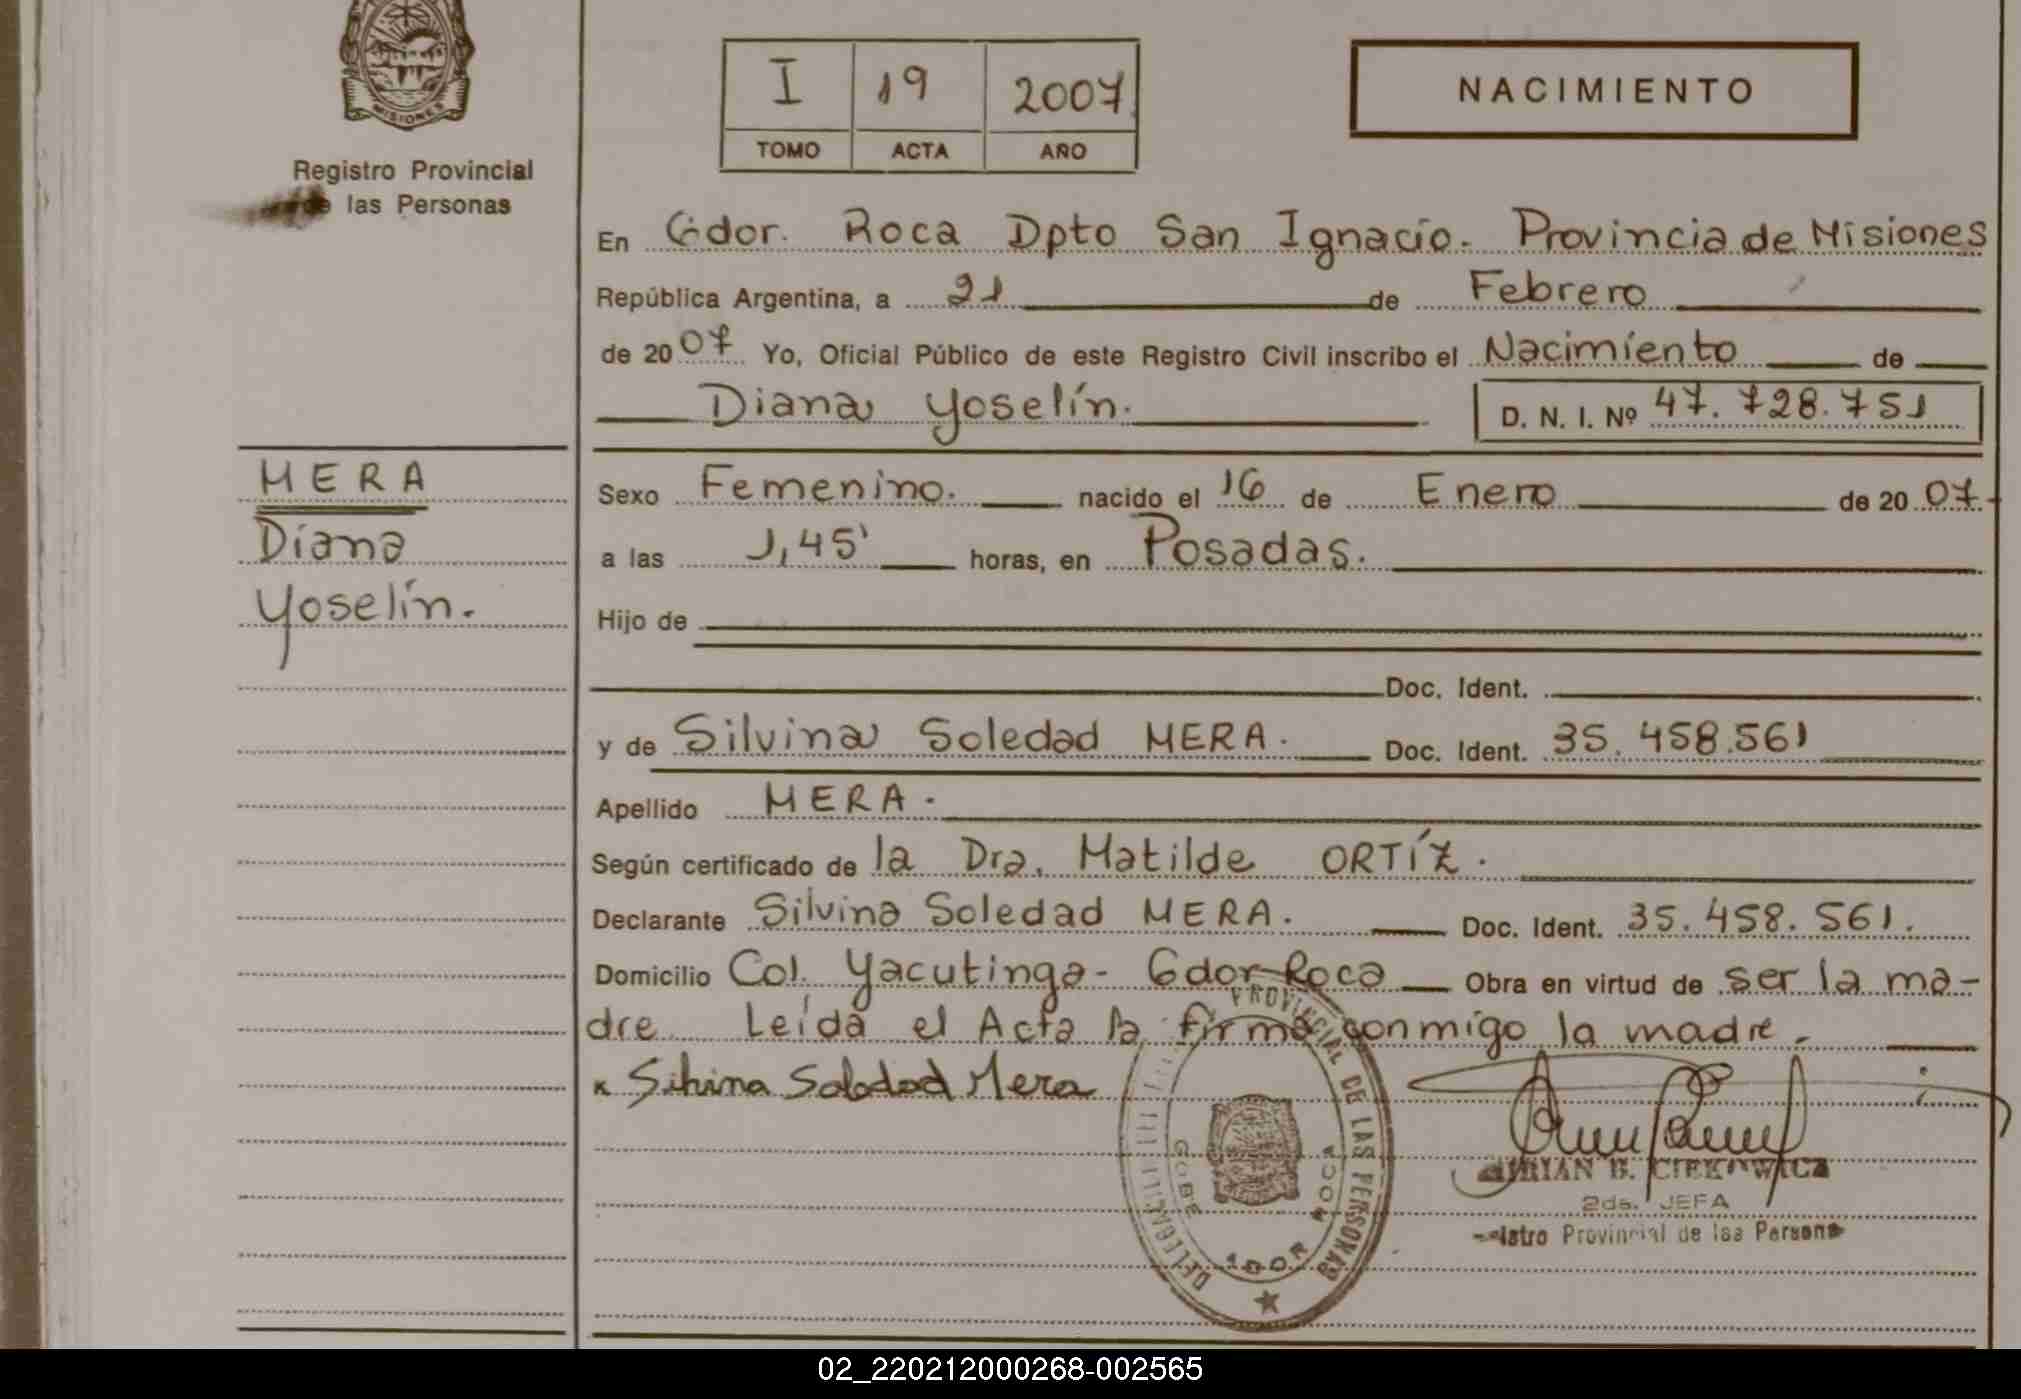 MISIONES
Registro Provincial
de las Personas
I 19 2007
TOMO ACTA AÑO
NACIMIENTO
En Gdor. Roca Dpto San Ignacio. Provincia de Misiones
República Argentina, a 21 de Febrero
de 2007 Yo, Oficial Público de este Registro Civil inscribo el Nacimiento de
Diana Yoselín.
D. N. I. Nº 47.728.751
MERA
Diana
Yoselín.
Sexo Femenino. nacido el 16 de Enero de 2007.
a las 1,45' horas, en Posadas.
Hijo de
Doc. Ident.
y de Silvina Soledad MERA. Doc. Ident. 35.458.561
Apellido MERA.
Según certificado de la Dra. Matilde ORTÍZ.
Declarante Silvina Soledad MERA. Doc. Ident. 35.458.561.
Domicilio Col. Yacutinga- Gdor Roca Obra en virtud de ser la ma-
dre. Leída el Acta la firma conmigo la madre.
x Silvina Soledad Mera
PROVINCIAL DE LAS PERSONAS
GOBE ROCA
B. CIEKOWICZ
2da. JEFA
Provincial de las Persona
02_220212000268-002565